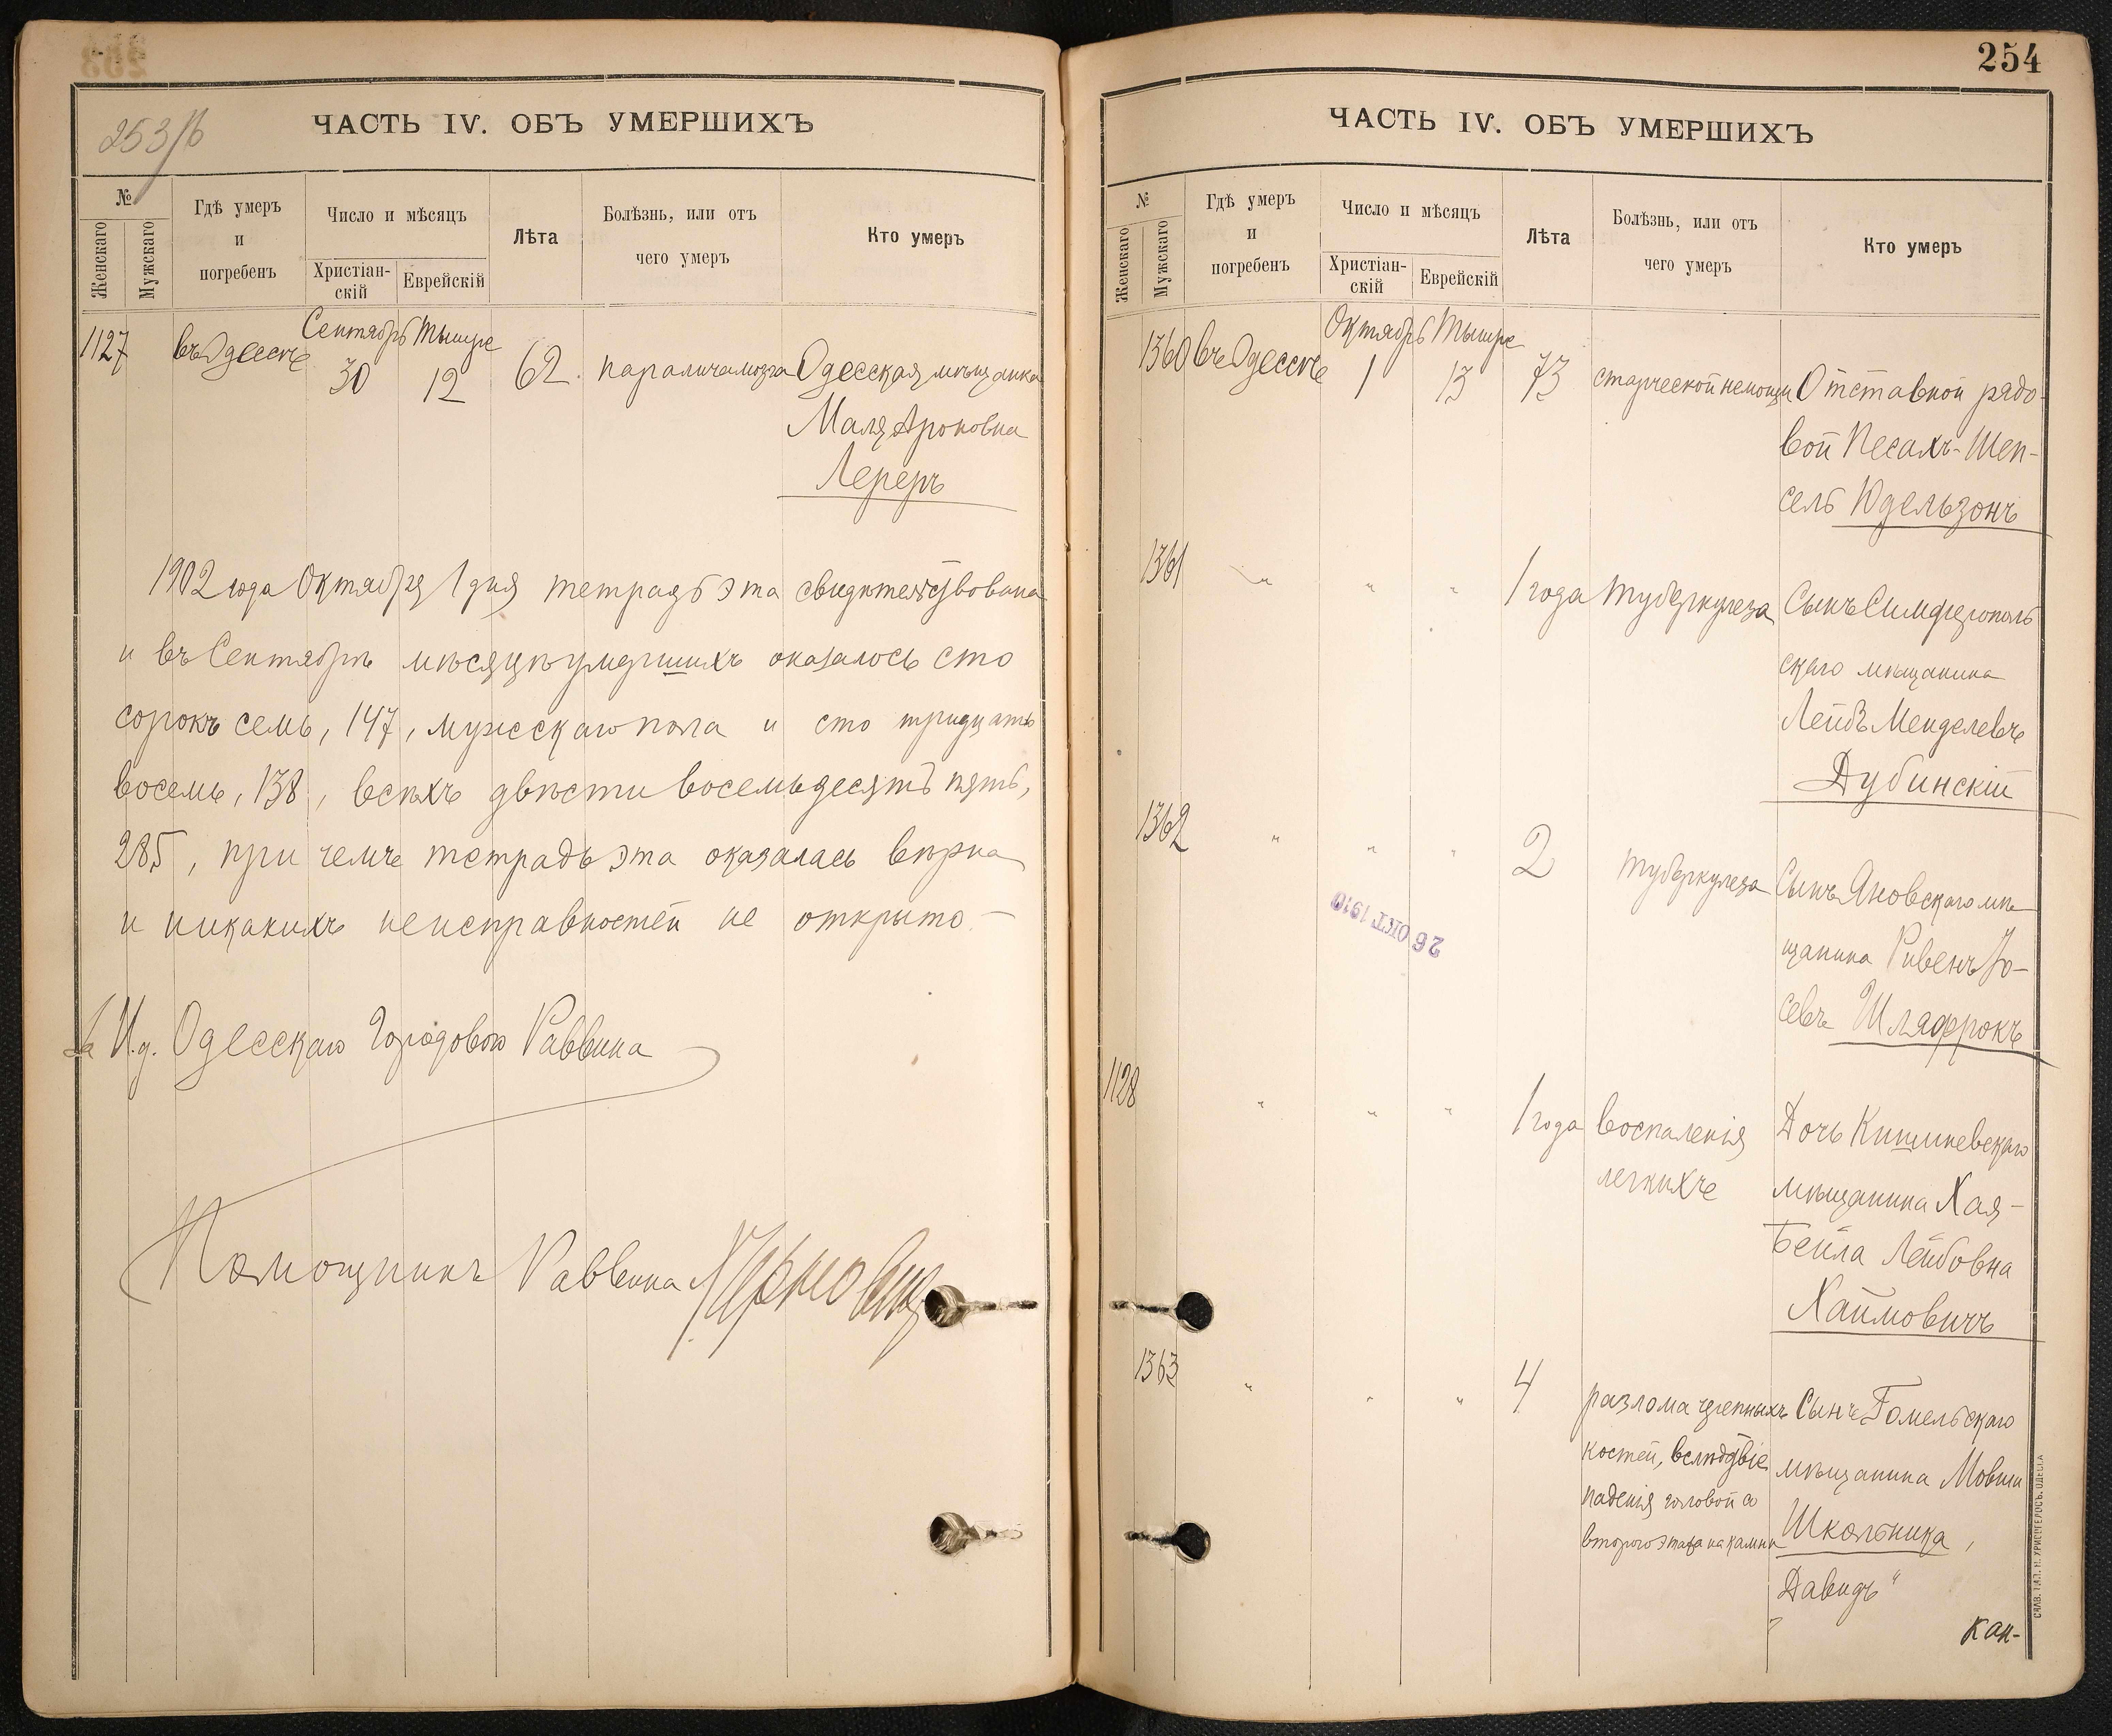 253/б
ЧАСТЬ IV. ОБЪ УМЕРШИХЪ
№
Женскаго
Мужскаго
Гдѣ умеръ
и
погребенъ
Число и мѣсяцъ
Христіан-
скій
Еврейскій
Лѣта
Болѣзнь, или отъ
чего умеръ
Кто умеръ
Сентябрь Тышре
1127 въ Одессѣ 30 12 62. паралича мозга Одесская мѣщанка
Маля Ароновна
Лереръ
1902 года Октября 1 дня тетрадь эта свидѣтельствована
и въ Сентябрѣ мѣсяцѣ умершихъ оказалось сто
сорокъ семь, 147, мужескаго пола и сто тридцать
восемь, 138, всѣхъ двѣсти восемьдесятъ пять,
285, при чемъ тетрадь эта оказалась вѣрна
и никакихъ неисправностей не открыто. —
За И.д. Одесскаго Городового Раввина
Помощникъ Раввина
254
ЧАСТЬ IV. ОБЪ УМЕРШИХЪ
№
Женскаго
Мужскаго
Гдѣ умеръ
и
погребенъ
Число и мѣсяцъ
Христіан-
скій
Еврейскій
Лѣта
Болѣзнь, или отъ
чего умеръ
Кто умеръ
Октябрь Тышре
1360 въ Одессѣ 1 13 73 старческой немощи Отставной рядо-
вой Песахъ-Шеп-
сель Юдельзонъ
1361 " " " 1 года туберкулеза Сынъ Симферополь
скаго мѣщанина
Лейбъ Менделевъ
Дубинскій
1362 " " " 2 туберкулеза Сынъ Яновскаго мѣ
щанина Ривенъ Іо-
севъ Шлафрокъ
26 ОКТ 1910
1128 " " " 1 года воспаленія Дочь Кишиневскаго
легкихъ мѣщанина Хая-
Бейла Лейбовна
Хаймовичъ
1363 " " " 4 разлома черепныхъ Сынъ Гомельскаго
костей, вслѣдствіе мѣщанина Мовши
паденія головой со Школьника,
второго этажа на камни
Давидъ "
кан-